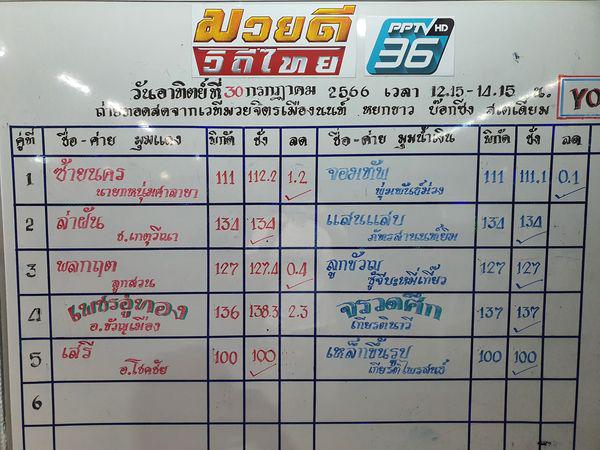 มวยดี
วิถีไทย
PPTV HD
36
วันอาทิตย์ที่ 30 กรกฎาคม 2566 เวลา 12.15-14.15 น.
ถ่ายทอดสดจากเวทีมวยจิตรเมืองนนท์ หยกขาว บ๊อกซิ่ง สเตเดี้ยม
YO
คู่ที่ ชื่อ-ค่าย มุมแดง พิกัด ชั่ง ลด ชื่อ-ค่าย มุมน้ำเงิน พิกัด ชั่ง ลด
1 ซ้ายนคร 111 112.2 1.2 จอมทัพ 111 111.1 0.1
นายกหนุ่มศาลายา พุ่มพันธ์ม่วง
2 ล่าฝัน 134 134 แสนแสบ 134 134
ช.เกตุวีณา ภัทรสานนท์ยิม
3 พลกฤต 127 127.4 0.4 ลูกขวัญ 127 127
ลูกสวน ซู้จีบะหมี่เกี๊ยว
4 เพชรอู่ทอง 136 138.3 2.3 จรวดศึก 137 137
อ.ขวัญเมือง เกียรตินาวี
5 เสรี 100 100 เหล็กขึ้นรูป 100 100
อ.โชคชัย เกียรติไพรสณธ์
6